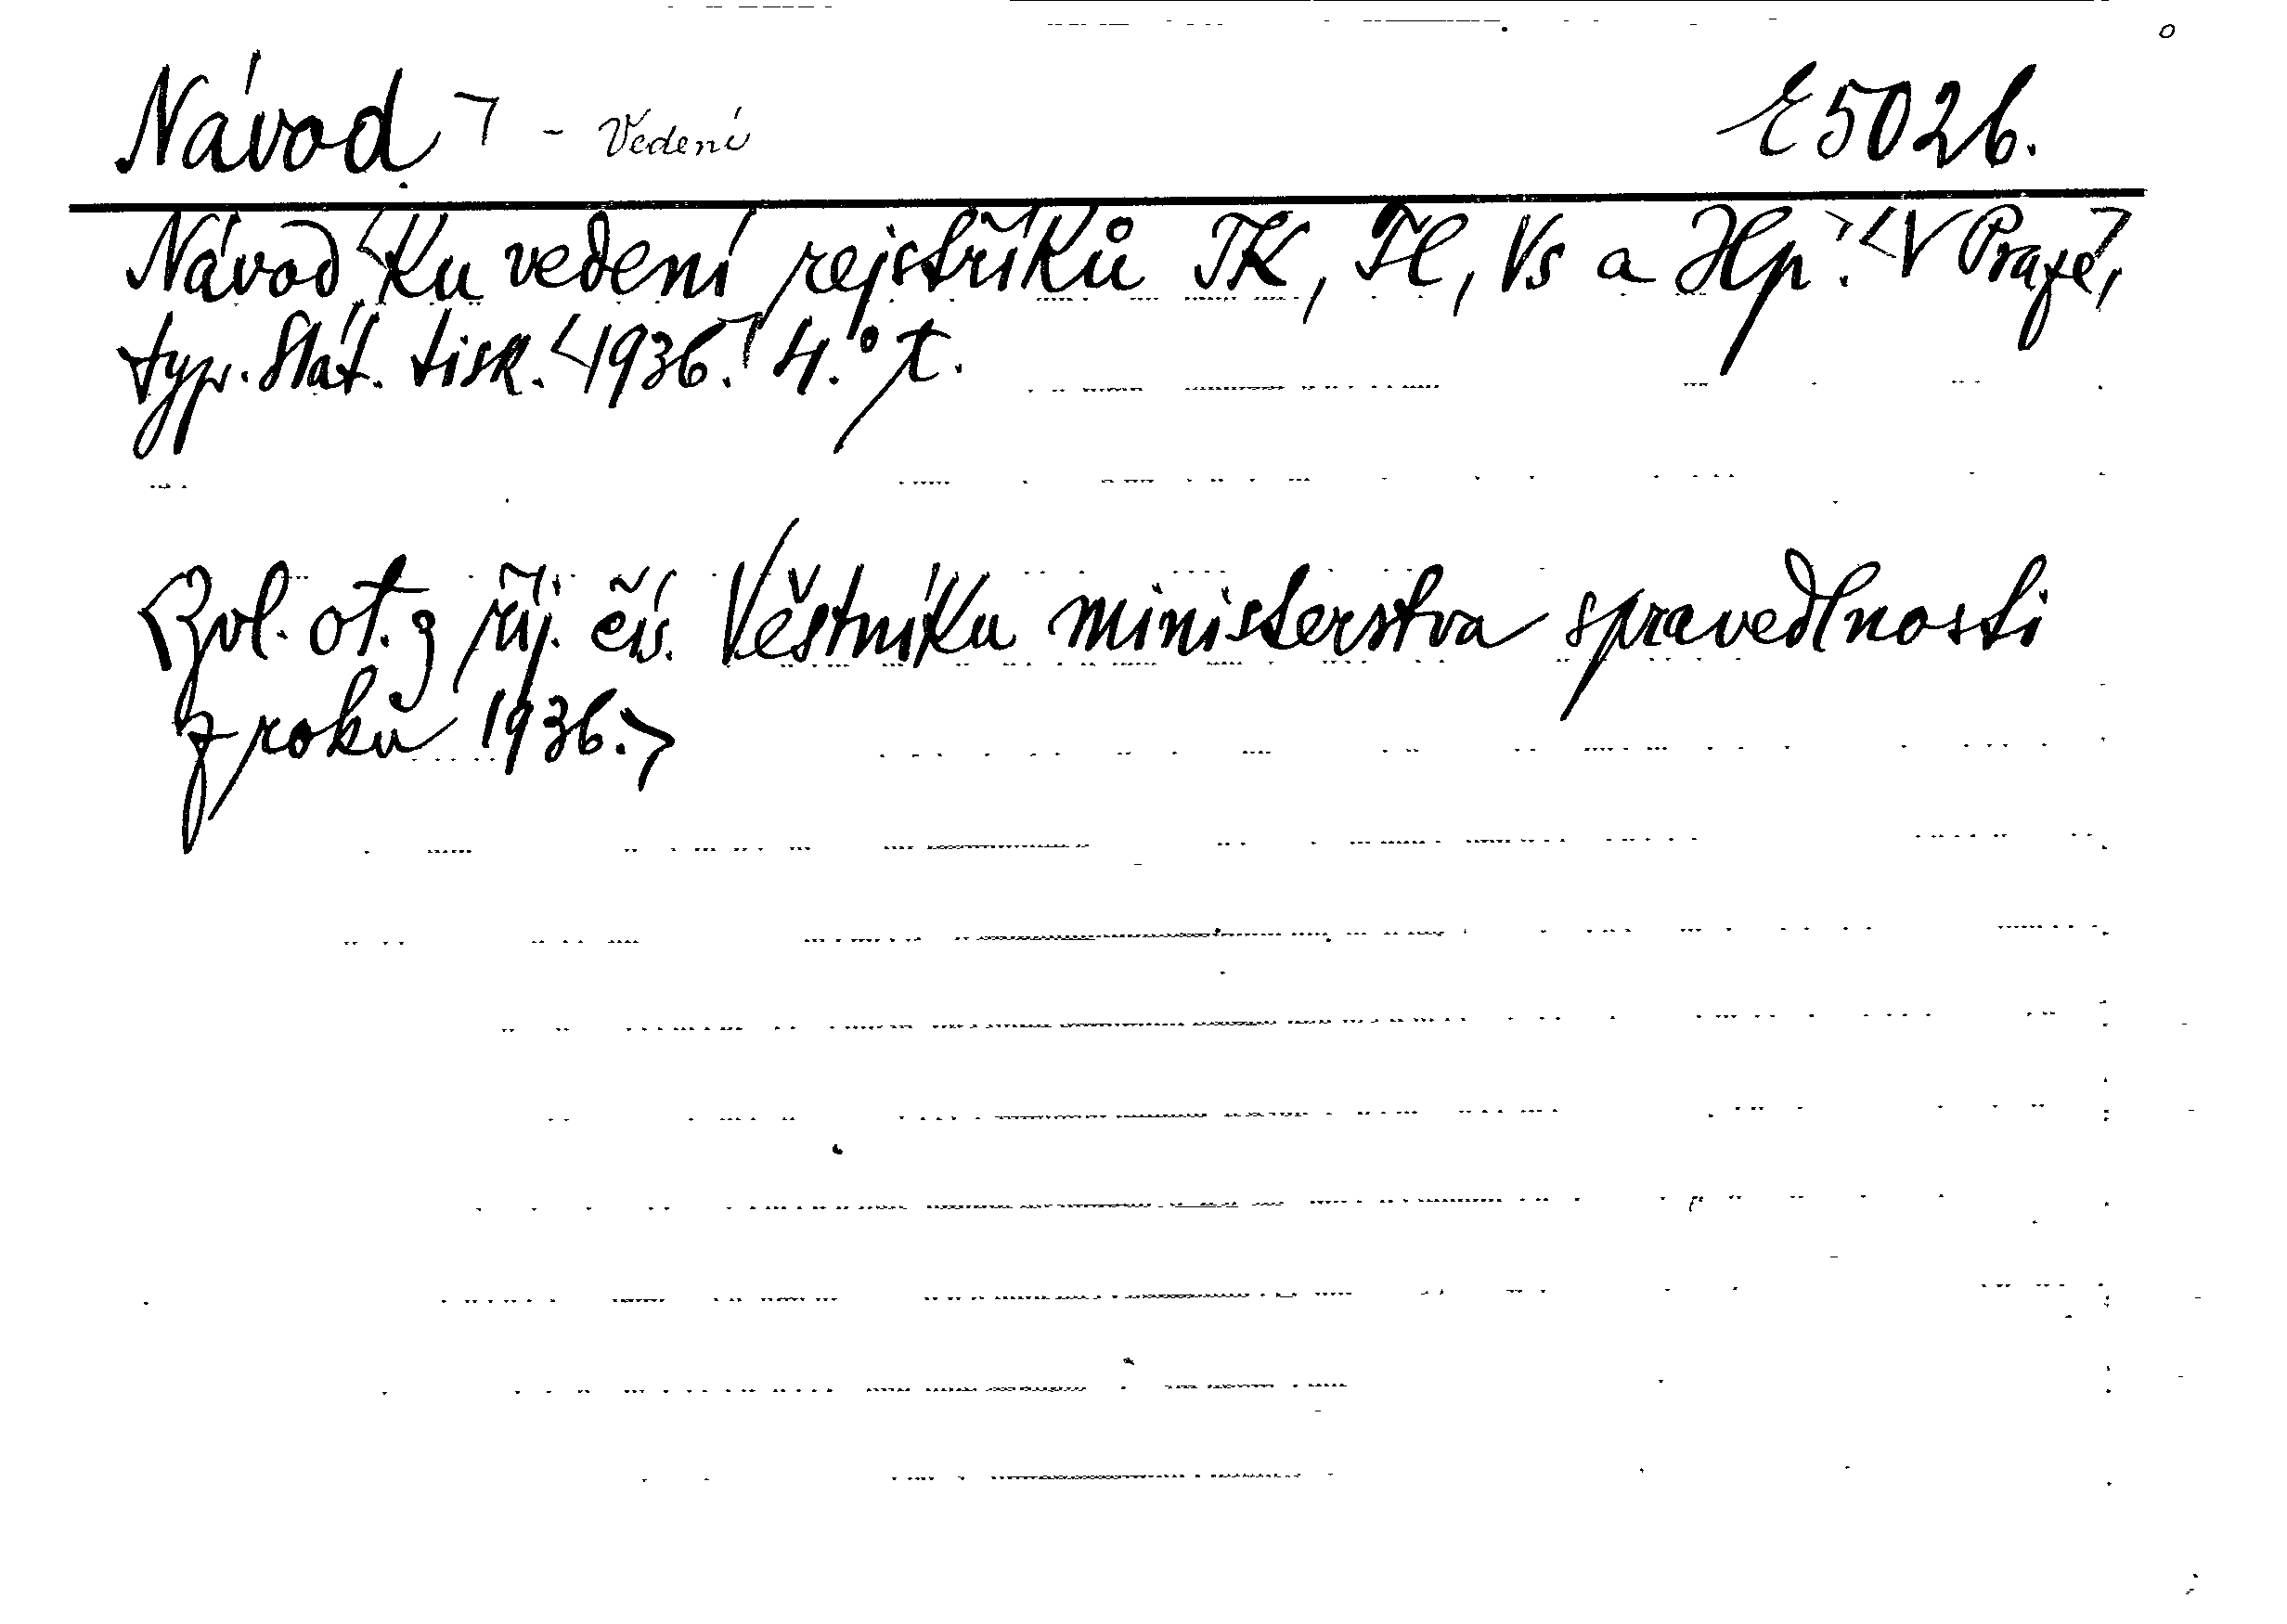 Návod - Vedení E 5026.
Návod ku vedení rejstříků TK, Tl, Vs a Hp. V Praze,
typ. Stát. tisk. 1936. 4.° t.
Zvl. ot. z říj. čís. Věstníku ministerstva spravedlnosti
z roku 1936.